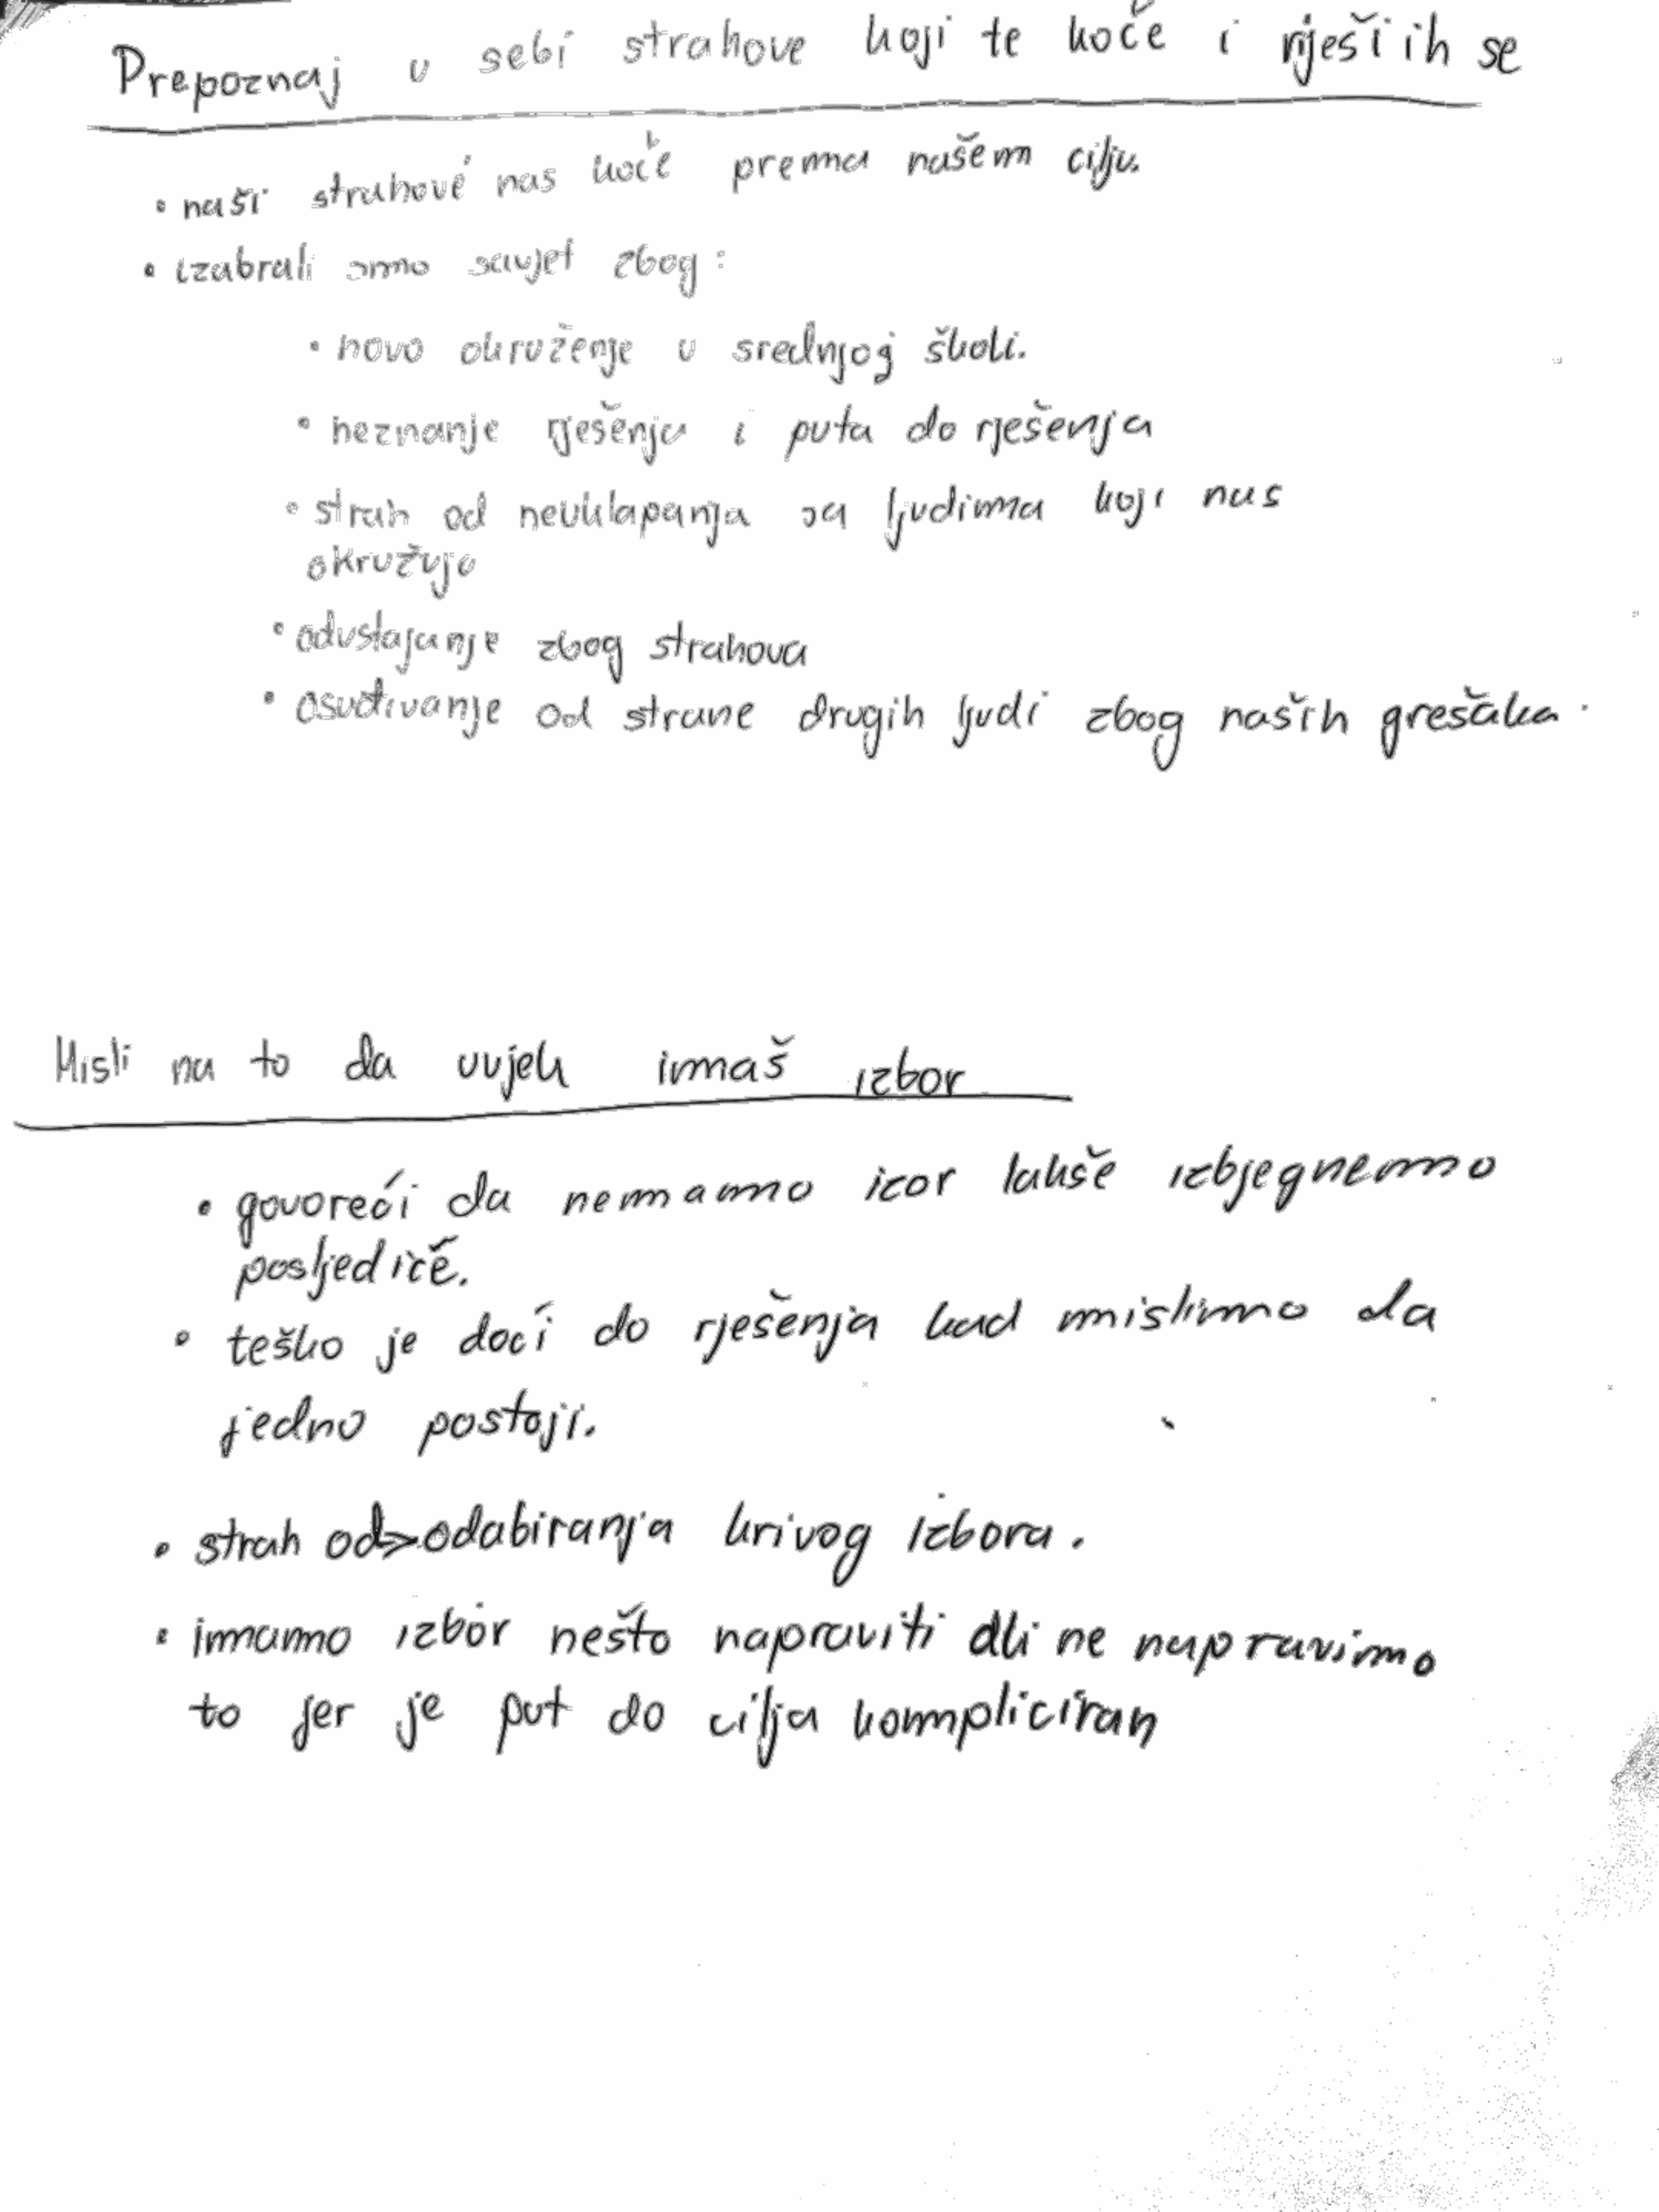 Prepoznaj u sebi strahove koji te koče i riješi ih se
• naši strahové nas koče prema našem cilju.
• izabrali smo savjet zbog:
• novo okruženje u srednjoj školi.
• neznanje rješenja i puta do rješenja
• strah od neuklapanja sa ljudima koji nas
okružuju
• odustajanje zbog strahova
• osuđivanje od strane drugih ljudi zbog naših grešaka.
Misli na to da uvjek imaš izbor
• govoreći da nemamo izor lakše izbjegnemo
posljedice.
• teško je doći do rješenja kad mislimo da
jedno postoji.
• strah od>odabiranja krivog izbora.
• imamo izbor nešto napraviti ali ne napravimo
to jer je put do cilja kompliciran